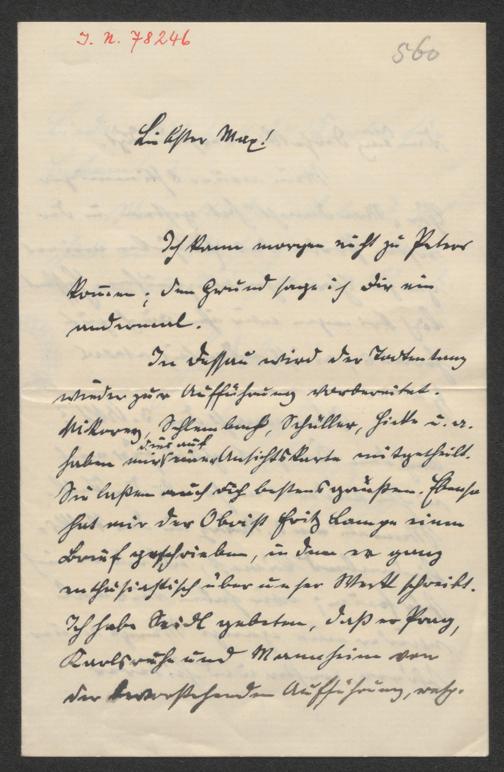 I. N. 78246
560
Liebster Max!
Ich kann morgen nicht zu Peters
kommen; den Grund sage ich Dir ein
andermal.
In Dessau wird der Todtentanz
wieder zur Aufführung vorbereitet.
Mikorey, Schlembach, Schüller, Hieke u. a.
dies auf
haben mir einer Ansichtskarte mitgetheilt.
Sie laßen auch Dich bestens grüßen. Ebenso
hat mir der Oboist Fritz Lampe einen
Brief geschrieben, in dem er ganz
enthusiastisch über unser Werk schreibt.
Ich habe Seidl gebeten, daß er Prag,
Karlsruhe und Mannheim von
der bevorstehenden Aufführung, resp.